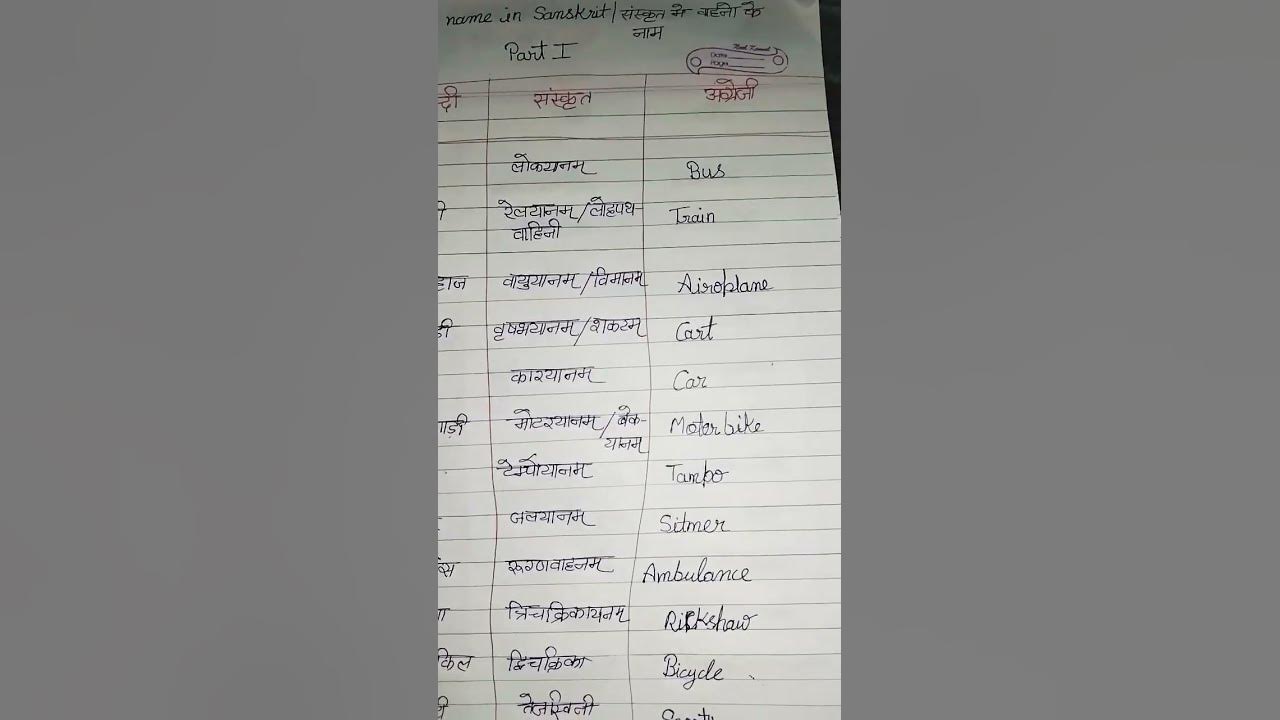 name in Sanskrit/संस्कृत मे वाहनो के
नाम
Part I
दी संस्कृत अंग्रेजी
लोकयानम् Bus
रेलयानम्/लोहपथ- Train
वाहिनी
हाज वायुयानम्/विमानम् Airoplane
डी वृषभयानम्/शकटम् Cart
कारयानम् Car
गाड़ी मोटरयानम्/बैक- Moterbike
यानम्
टेम्पोयानम् Tampo
जलयानम् Sitmer
ंस रूग्णवाहनम् Ambulance
त्रिचक्रिकायनम् Rickshaw
किल द्विचक्रिका Bicycle
तेजस्विनी